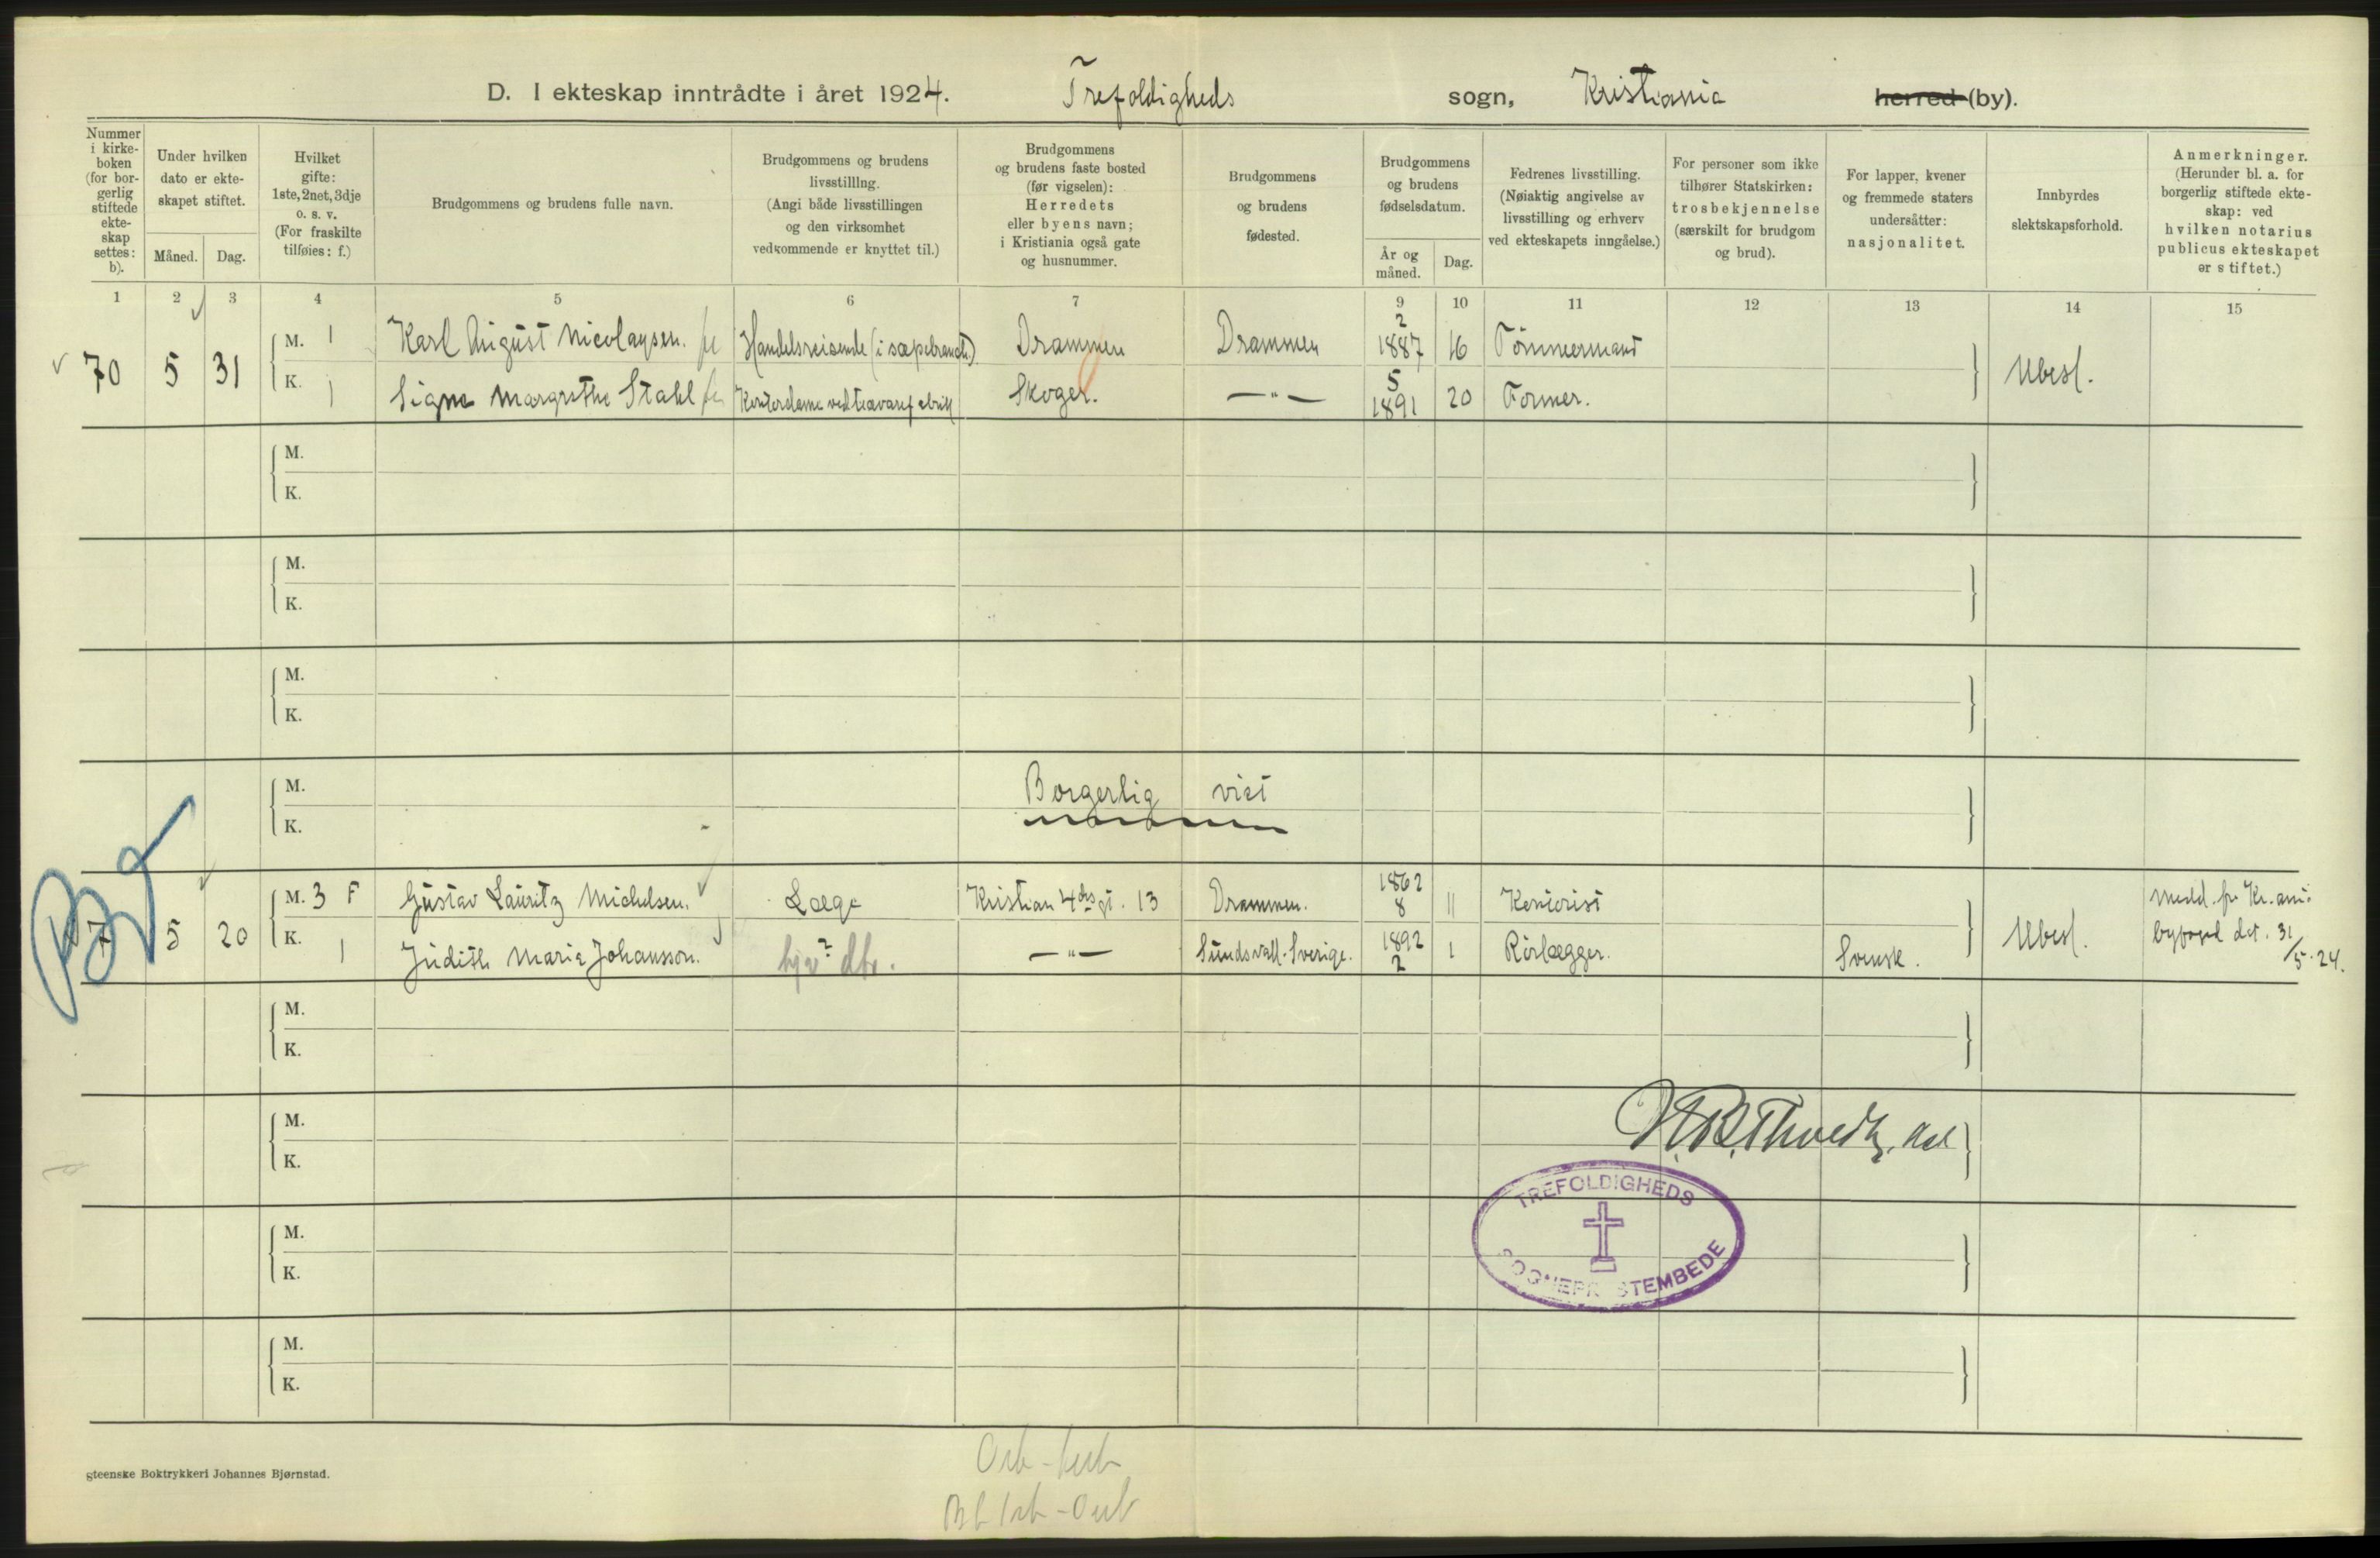 D. I ekteskap inntrådte i året 1924. Trefoldigheds sogn, Kristiania herred (by).
Nummer
i kirke-
boken
(for bor-
gerlig
stiftede
ekte-
skap
settes:
b).
Under hvilken
dato er ekte-
skapet stiftet.
Måned. Dag.
Hvilket
gifte:
1ste, 2net, 3dje
o. s. v.
(For fraskilte
tilføies: f.)
Brudgommens og brudens fulle navn.
Brudgommens og brudens
livsstilling.
(Angi både livsstillingen
og den virksomhet
vedkommende er knyttet til.)
Brudgommens
og brudens faste bosted
(før vigselen):
Herredets
eller byens navn;
i Kristiania også gate
og husnummer.
Brudgommens
og brudens
fødested.
Brudgommens
og brudens
fødselsdatum.
År og
måned.
Dag.
Fedrenes livsstilling.
(Nøiaktig angivelse av
livsstilling og erhverv
ved ekteskapets inngåelse.)
For personer som ikke
tilhører Statskirken:
trosbekjennelse
(særskilt for brudgom
og brud).
For lapper, kvener
og fremmede staters
undersåtter:
nasjonalitet.
Innbyrdes
slektskapsforhold.
Anmerkninger.
(Herunder bl. a. for
borgerlig stiftede ekte-
skap: ved
hvilken notarius
publicus ekteskapet
er stiftet.)
1 2 3 4 5 6 7 8 9 10 11 12 13 14 15
70 5 31 M. 1 Karl August Nicolaysen. Handelsreisende (i sæpebranch) Drammen Drammen 2 1887 16 Tømmermand Ubesl.
K. 1 Signe Margrethe Stahl Kontordame ved trævaref abrik Skoger. — " — 5 1891 20 Former.
M.
K.
M.
K.
M.
K.
M. Borgerlig viet
K.
5 20 M. 3 F Gustav Lauritz Michelsen. Læge Kristian 4des gt. 13 Drammen. 1862 8 11 Kontorist Ubesl. Medd. fr. Kr.ania
byfoged dat. 31/5. 24.
K. 1 Judith Maria Johansson. — " — Sundsvall. Sverige. 1892 2 1 Rørlægger. Svensk.
M.
K.
M.
K.
TREFOLDIGHEDS
SOGNEPR STEMBEDE
M.
K.
M.
K.
gteenske Boktrykkeri Johannes Bjørnstad.